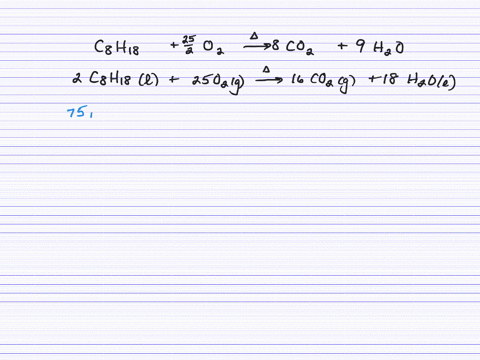 C8H18 + 25/2 O2 Δ→ 8 CO2 + 9 H2O
2 C8H18 (l) + 25O2(g) Δ→ 16 CO2(g) + 18 H2O(l)
75,